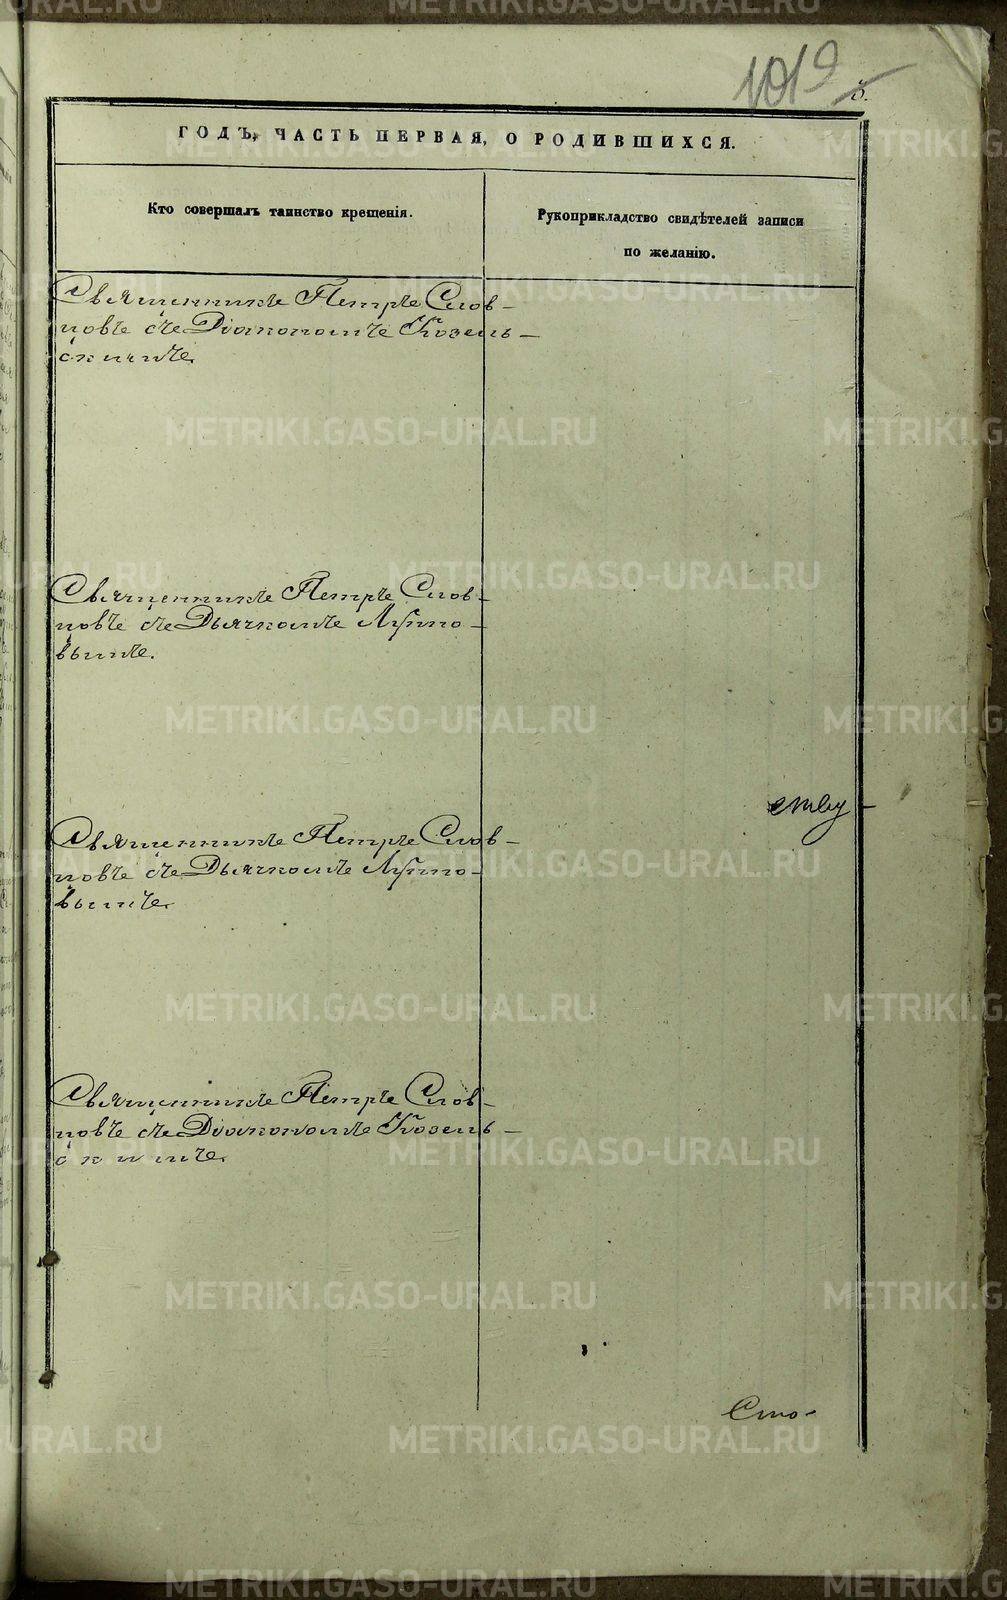 1019
5.
ГОДЪ, ЧАСТЬ ПЕРВАЯ, О РОДИВШИХСЯ.
Кто совершалъ таинство крещенія.
Рукоприкладство свидѣтелей записи
по желанію.
Священникъ Петръ Слов-
цовъ съ Діакономъ Козель-
скимъ
Священникъ Петръ Слов-
цовъ съ Дьячкомъ
вымъ.
Священникъ Петръ Слов-
цовъ съ Дьячкомъ
вымъ.
Священникъ Петръ Слов-
цовъ съ Діакономъ Козель-
скимъ.
Сто-
METRIKI.GASO-URAL.RU